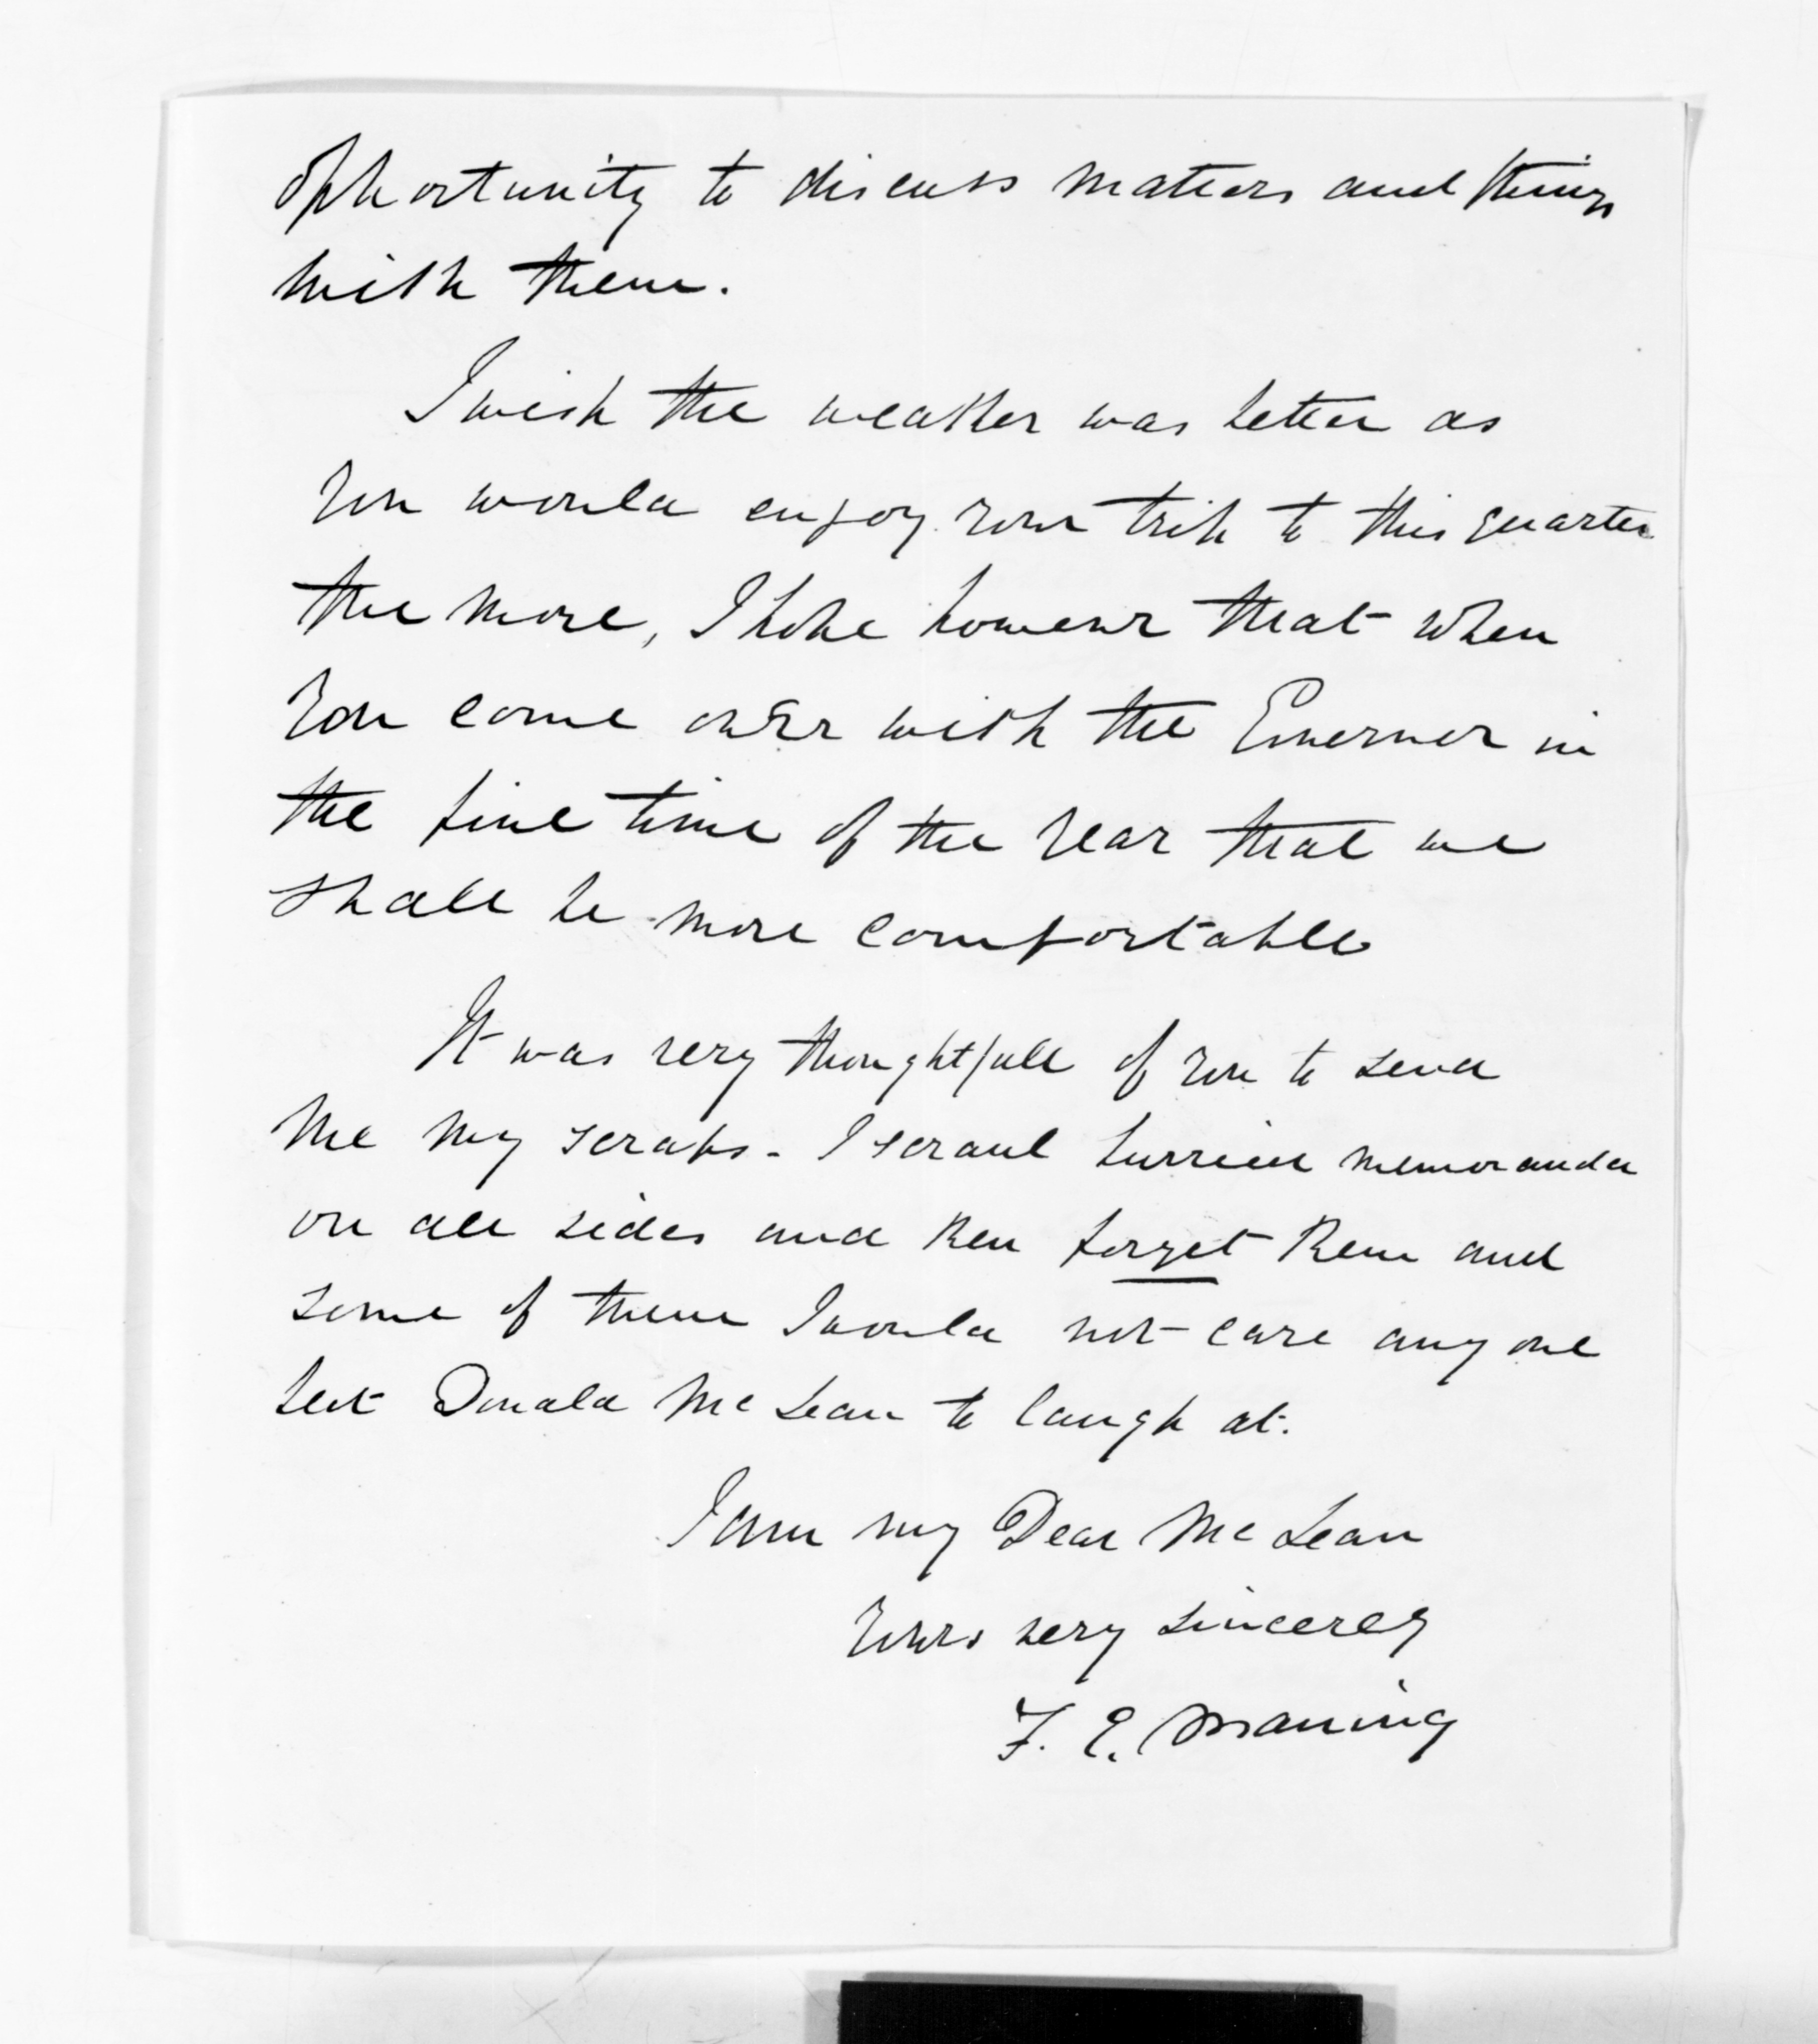 opportunity to discuss matters and things
with them.
I wish the weather was better as
you would enjoy your trip to this quarter
the more, I hope however that when
you come over with the Governer in
the fine time of the year that we
shall be more comfortable
It was very thoughtfull of you to send
me my scraps - I scraul hurried memoranda
on all sides and then forget them and
some of them I would not care any one
but Donald McLean to laugh at.
I am my Dear McLean
Yours very sincerely
F. E. Maning